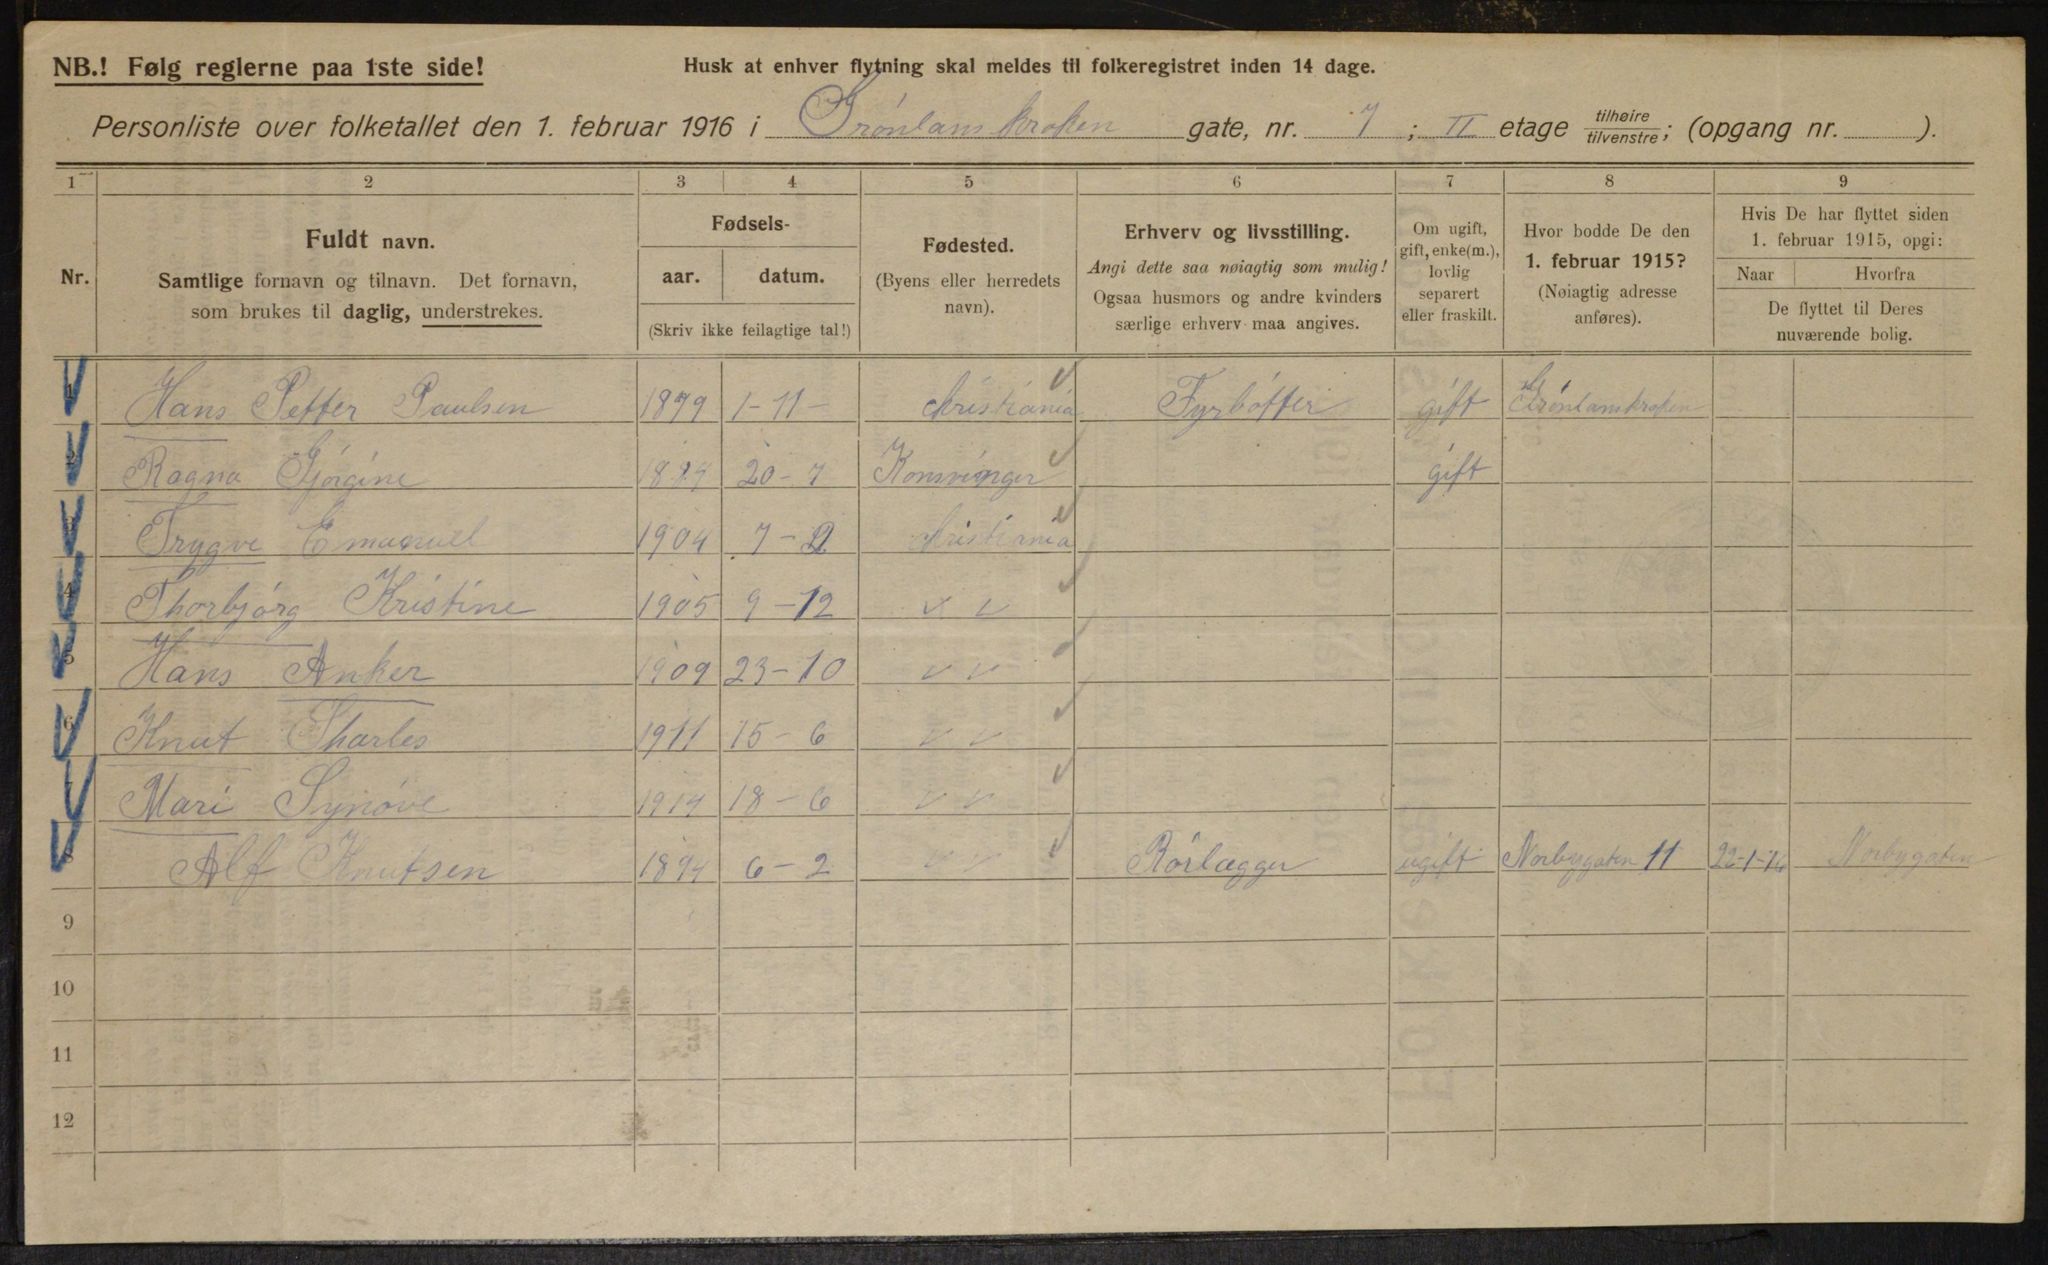 NB.! Følg reglerne paa 1ste side!
Husk at enhver flytning skal meldes til folkeregistret inden 14 dage.
Personliste over folketallet den 1. februar 1916 i Grønlanskroken gate, nr. 7; II etage tilhøire/tilvenstre; (opgang nr. ).
1 2 3 4 5 6 7 8 9
Nr.
Fuldt navn.
Samtlige fornavn og tilnavn. Det fornavn,
som brukes til daglig, understrekes.
Fødsels-
aar. datum.
(Skriv ikke feilagtige tal!)
Fødested.
(Byens eller herredets
navn).
Erhverv og livsstilling.
Angi dette saa nøiagtig som mulig!
Ogsaa husmors og andre kvinders
særlige erhverv maa angives.
Om ugift,
gift, enke(m.),
lovlig
separert
eller fraskilt.
Hvor bodde De den
1. februar 1915?
(Nøiagtig adresse
anføres).
Hvis De har flyttet siden
1. februar 1915, opgi:
Naar Hvorfra
De flyttet til Deres
nuværende bolig.
1 Hans Petter Paulsen 1879 1-11- Kristiania Fyrbötter gift Grönlanskroken
2 Ragna Gjörgine 20-7 Konsvinger gift
3 Trygve Emanuel 1904 7-2 Kristiania
4 Thorbjörg Kristine 1905 9-12 v v
5 Hans Anker 1909 23-10 v v
6 Knut Tharles 1911 15-6 v v
7 Mari Synöve 1914 18-6 v v
8 Alf Knutsen 1894 6-2 v v Rörlægger ugift Norbygaten 11 22-1-16 Norbygaten
9
10
11
12